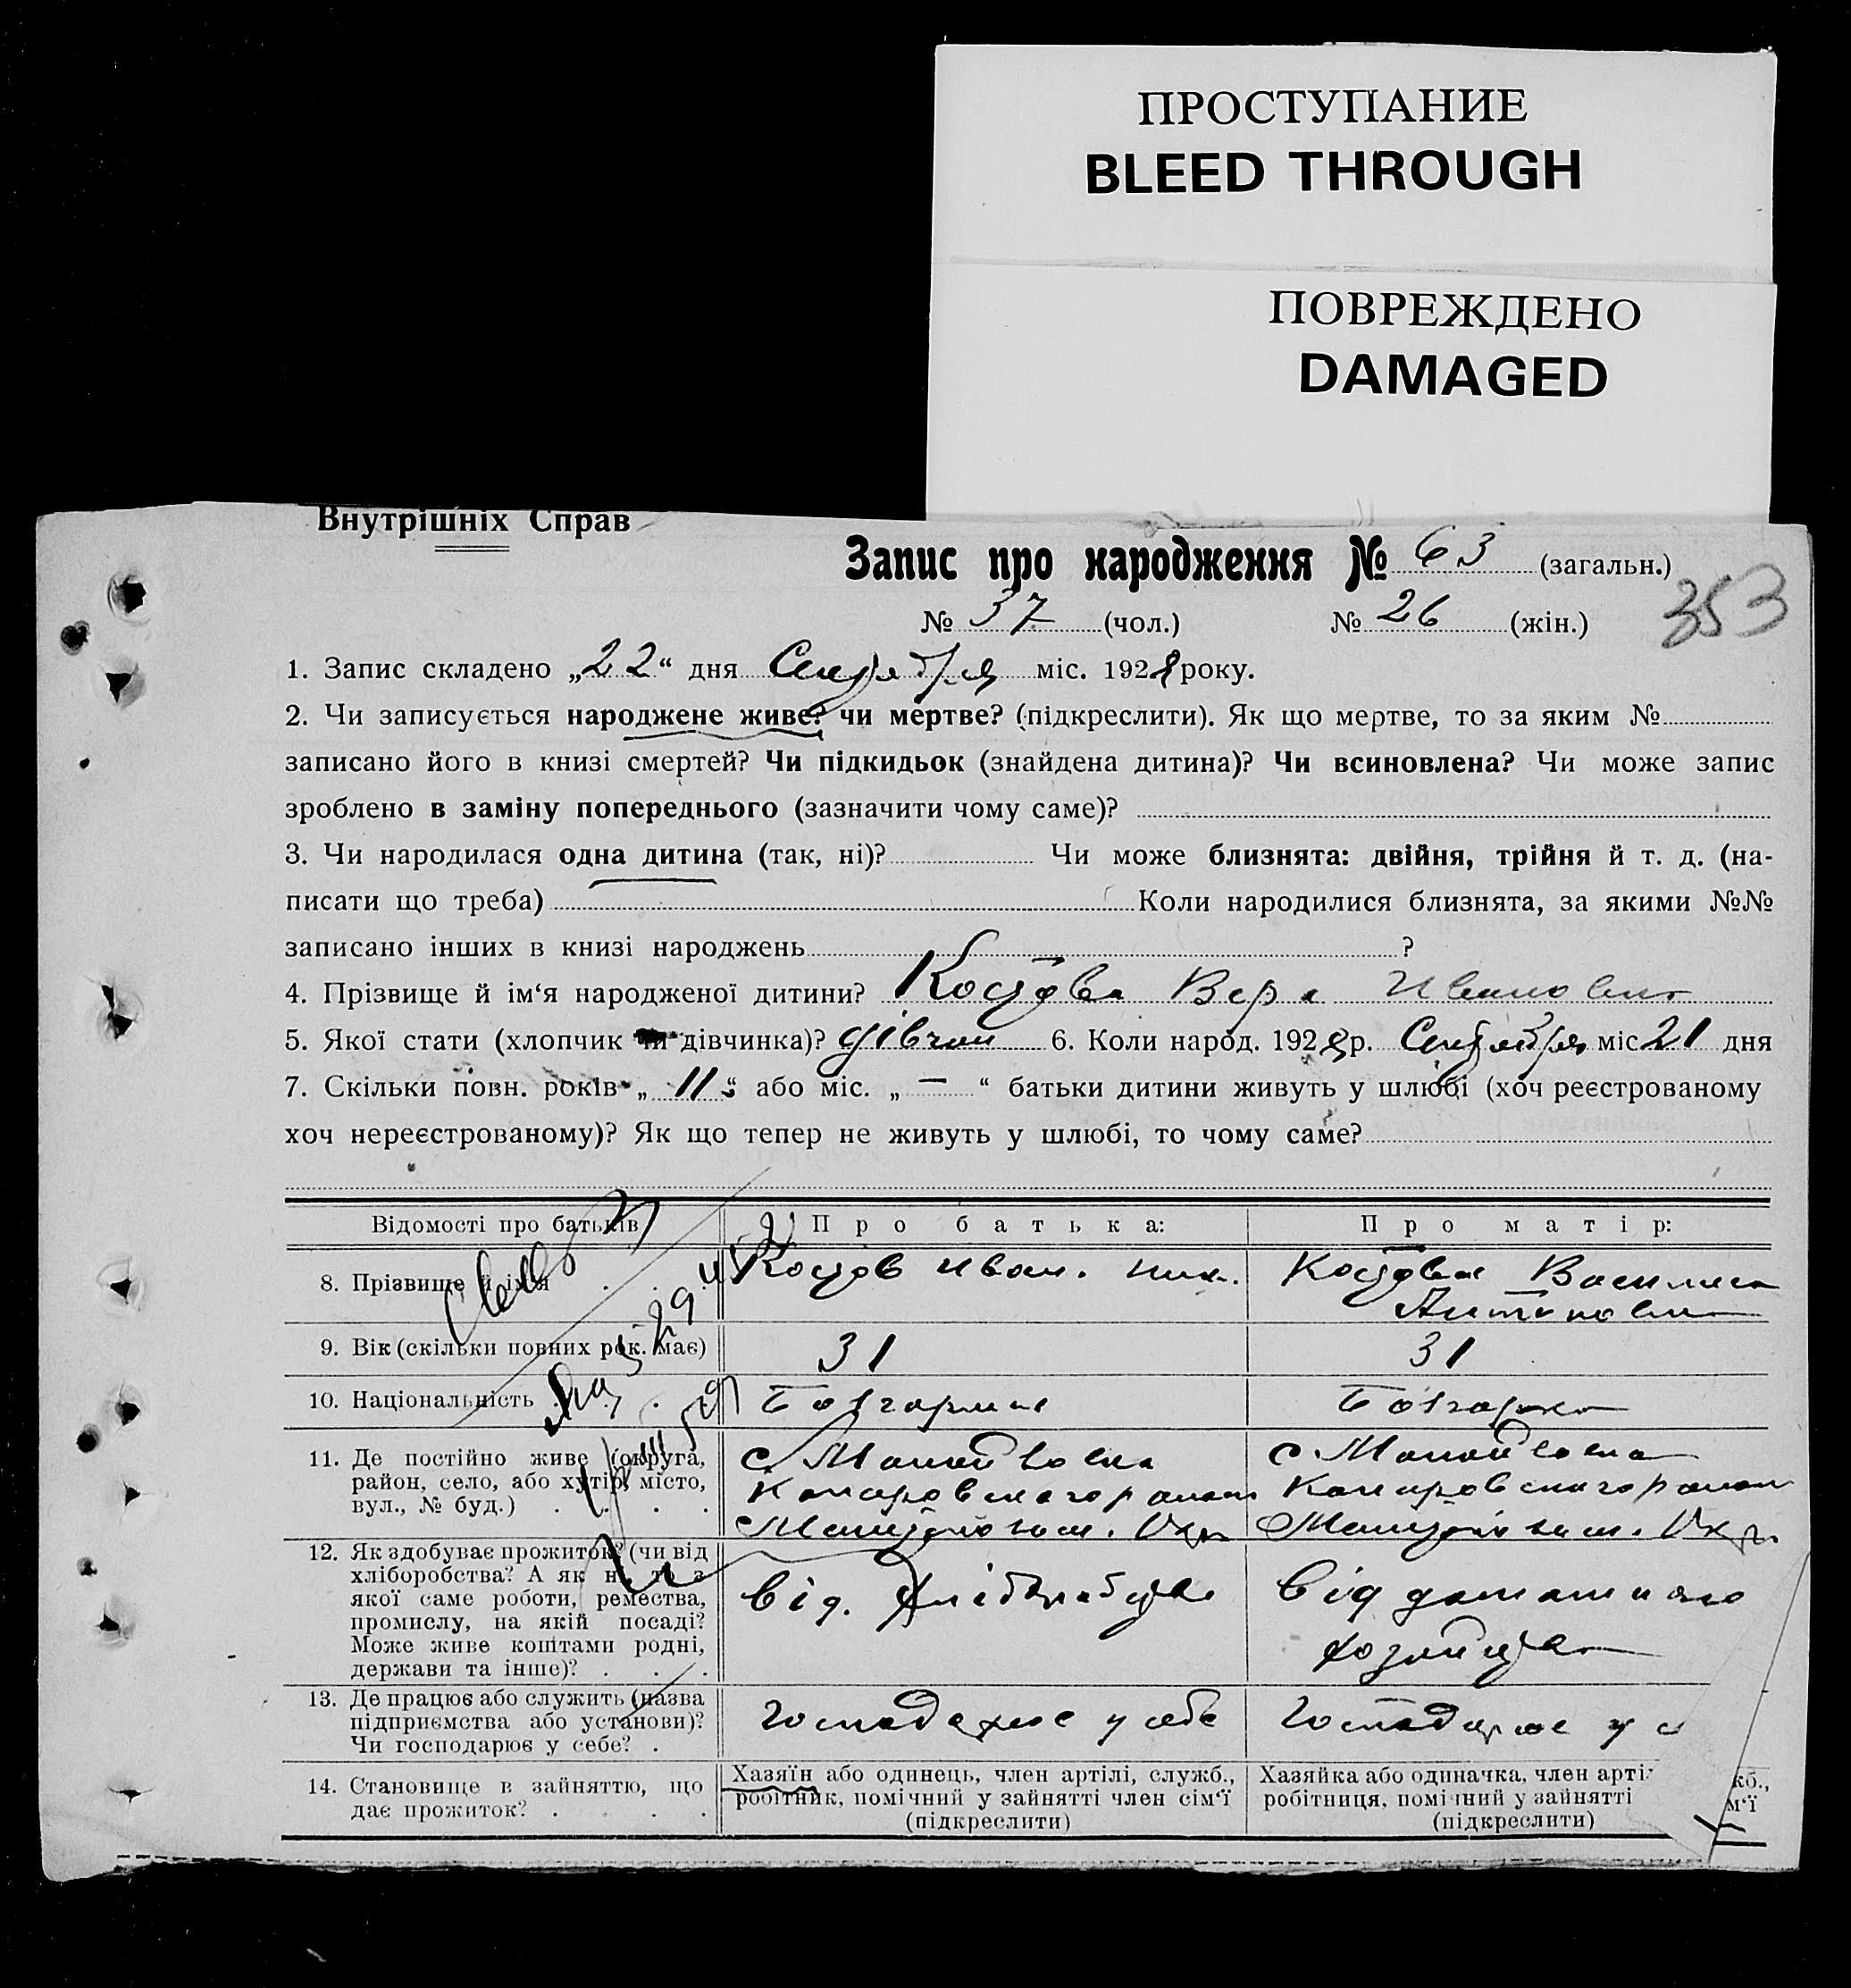 ПРОСТУПАНИЕ
BLEED THROUGH
ПОВРЕЖДЕНО
DAMAGED
Внутрішніх Справ
Запис про народження № 63 (загальн.)
№ 37 (чол.) № 26 (жін.) 353
1. Запис складено „22“ дня Сентября міс. 1928 року.
2. Чи записується народжене живе? чи мертве? (підкреслити). Як що мертве, то за яким №
записано його в книзі смертей? Чи підкидьок (знайдена дитина)? Чи всиновлена? Чи може запис
зроблено в заміну попереднього (зазначити чому саме)?
3. Чи народилася одна дитина (так, ні)? Чи може близнята: двійня, трійня й т. д. (на-
писати що треба) Коли народилися близнята, за якими №№
записано інших в книзі народжень ?
4. Прізвище й ім‘я народженої дитини? Костова Вера Ивановна
5. Якої стати (хлопчик чи дівчинка)? дівчин 6. Коли народ. 1928 р. Сентября міс 21 дня
7. Скільки повн. років „ 11 “ або міс. „ — “ батьки дитини живуть у шлюбі (хоч реєстрованому
хоч нереєстрованому)? Як що тепер не живуть у шлюбі, то чому саме?
Відомості про батьків Про батька: Про матір:
8. Прізвище й ім‘я Костов Иван. Ник. Костова Василиса
Антоновна
9. Вік (скільки повних рок. має) 31 31
10. Національність Болгарин Болгарка
11. Де постійно живе (округа, с Манойловка с Манойловка
район, село, або хутір, місто,
вул., № буд.)
12. Як здобуває прожиток? (чи від
хліборобства? А як ні, то з від. хліборобства Від домашнього
якої саме роботи, ремества,
промислу, на якій посаді? хозяйства
Може живе коштами родні,
держави та інше)?
13. Де працює або служить (назва
підприємства або установи)? господарює у себе господарює у
Чи господарює у себе?
14. Становище в зайняттю, що Хазяїн або одинець, член артілі, служб., Хазяйка або одиначка, член арті кб.,
дає прожиток? робітник, помічний у зайнятті член сім‘ї робітниця, помічний у зайнятті м‘ї
(підкреслити) (підкреслити)